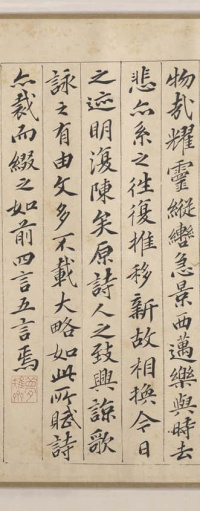 物哉耀靈縱轡急景西邁樂與時去
悲亦系之往復推移新故相換今日
之迹明復陳矣原詩人之致興諒歌
詠之有由文多不載大略如此所賦詩
亦裁而綴之如前四言五言焉